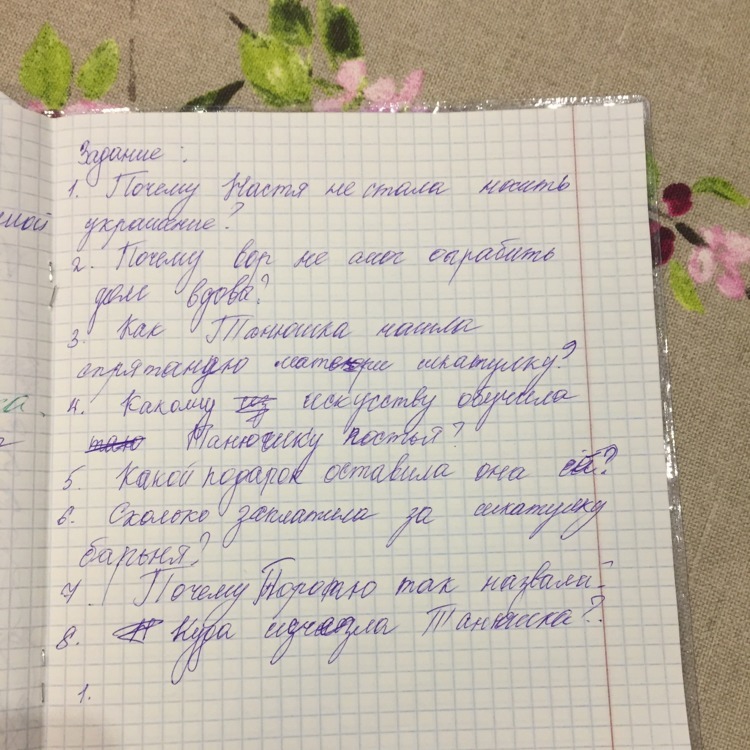 Задание:
1. Почему Настя не стала носить
украшение?
2. Почему вор не смог ограбить
дом вдовы?
3. Как Танюшка нашла
спрятаную матери шкатулку?
4. Какому искусству обучила
Танюшку гостья?
5. Какой подарок оставила она ей?
6. Сколько заплатила за шкатулку
барыня?
7. Почему Паротю так назвали?
8. Куда исчезла Танюшка?
1.